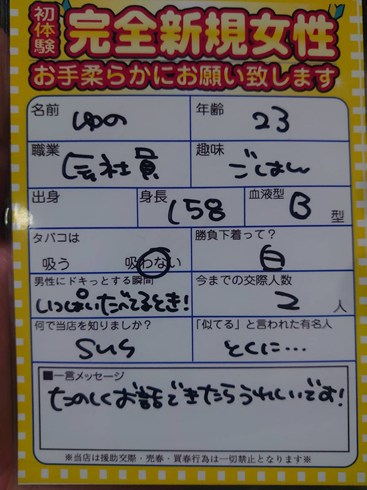 初体験 完全新規女性
お手柔らかにお願い致します
名前 ゆの 年齢 23
職業 会社員 趣味 ごはん
出身 身長 158 血液型 B 型
タバコは 吸う 吸わない 勝負下着って？ 白
男性にドキっとする瞬間 いっぱいたべてるとき! 今までの交際人数 2 人
何で当店を知りましたか？ SNS 「似てる」と言われた有名人 とくに…
■一言メッセージ
たのしくお話できたらうれしいです!
※当店は援助交際・売春・買春行為は一切禁止となります※